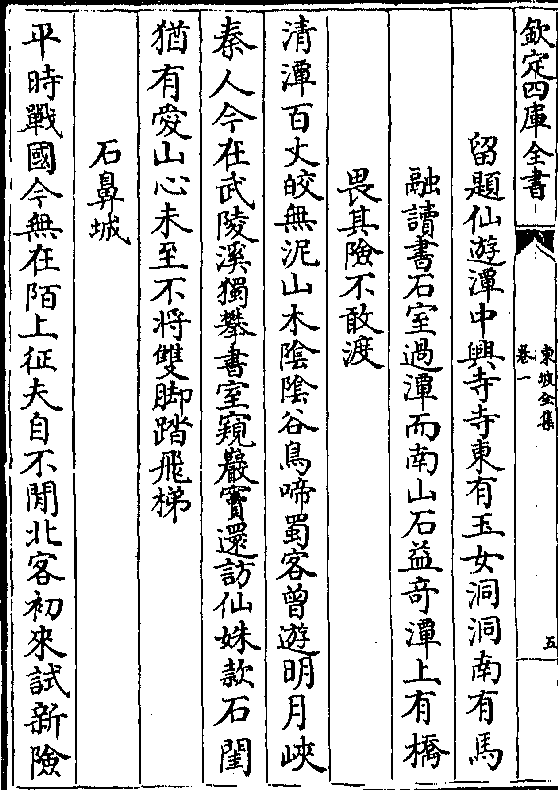 欽定四庫全書
東坡全集
卷一
五
留題仙遊潭中興寺寺東有玉女洞洞南有馬
融讀書石室過潭而南山石益奇潭上有橋
畏其險不敢渡
清潭百丈皎無泥山木陰陰谷鳥啼蜀客曾遊明月峽
秦人今在武陵溪獨攀書室窺巖竇還訪仙姝款石閨
猶有愛山心未至不將雙脚踏飛梯
石鼻城
平時戰國今無在陌上征夫自不閒北客初來試新險